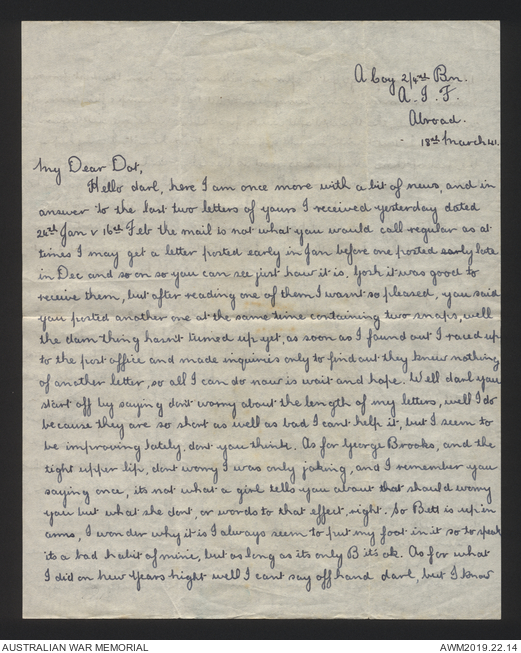 A Coy 2/4th Bn.
A. I. F.
Abroad.
18th March 41.
My Dear Dot,
Hello darl, here I am once more with a bit of news, and in
answer to the last two letters of yours I received yesterday dated
26th Jan & 16th Feb the mail is not what you would call regular as at
times I may get a letter posted early in Jan before one posted early late
in Dec and so on so you can see just how it is. Gosh it was good to
receive them, but after reading one of them I wasnt so pleased, you said
you posted another one at the same time containing two snaps, well
the darn thing hasn't turned up yet, as soon as I found out I raced up
to the post office and made inquiries only to find out they knew nothing
of another letter, so all I can do now is wait and hope. Well darl you
start off by saying dont worry about the length of my letters, well I do
because they are so short as well as bad I cant help it, but I seem to
be improving lately, dont you think. As for George Brooks, and the
tight upper lip, dont worry I was only joking, and I remember you
saying once, its not what a girl tells you about that should worry
you but what she dont, or words to that effect, right. So Bett is up in
arms, I wonder why it is I always seem to put my foot in it so to speak
its a bad habit of mine, but as long as its only B it's ok. As for what
I did on New Years night well I cant say off hand darl, but I know
AUSTRALIAN WAR MEMORIAL
AWM2019.22.14